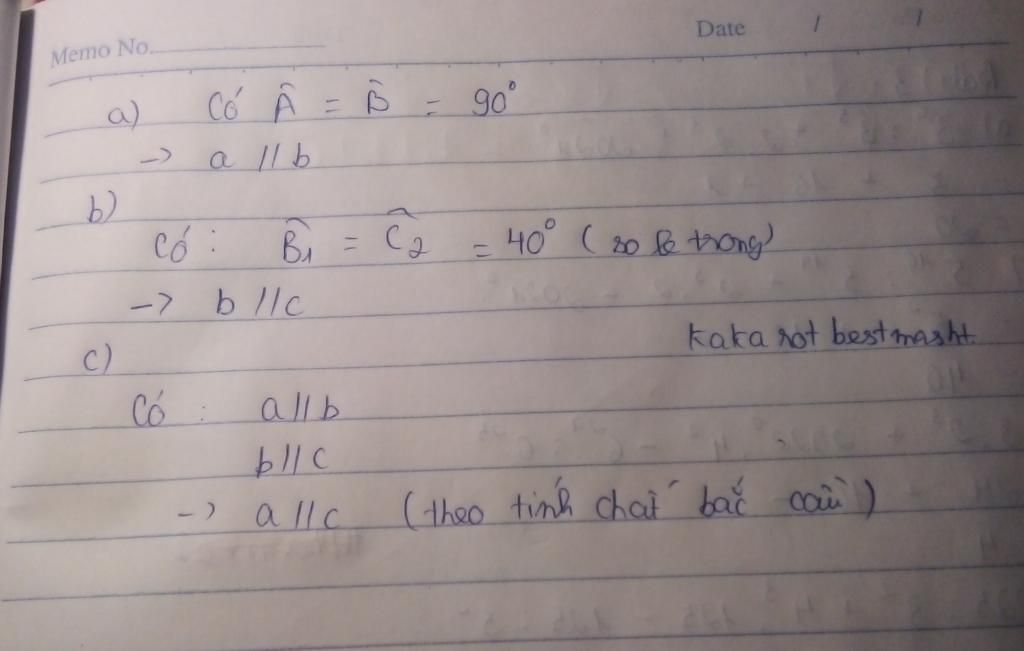 Memo No.
Date / /
a) Có Â = B̂ = 90°
-> a // b
b)
Có : B̂₁ = Ĉ₂ = 40° ( so le trong)
-> b // c
kaka rot bestmasht.
c)
Có : a // b
b // c
-> a // c (theo tính chất bắc cầu)